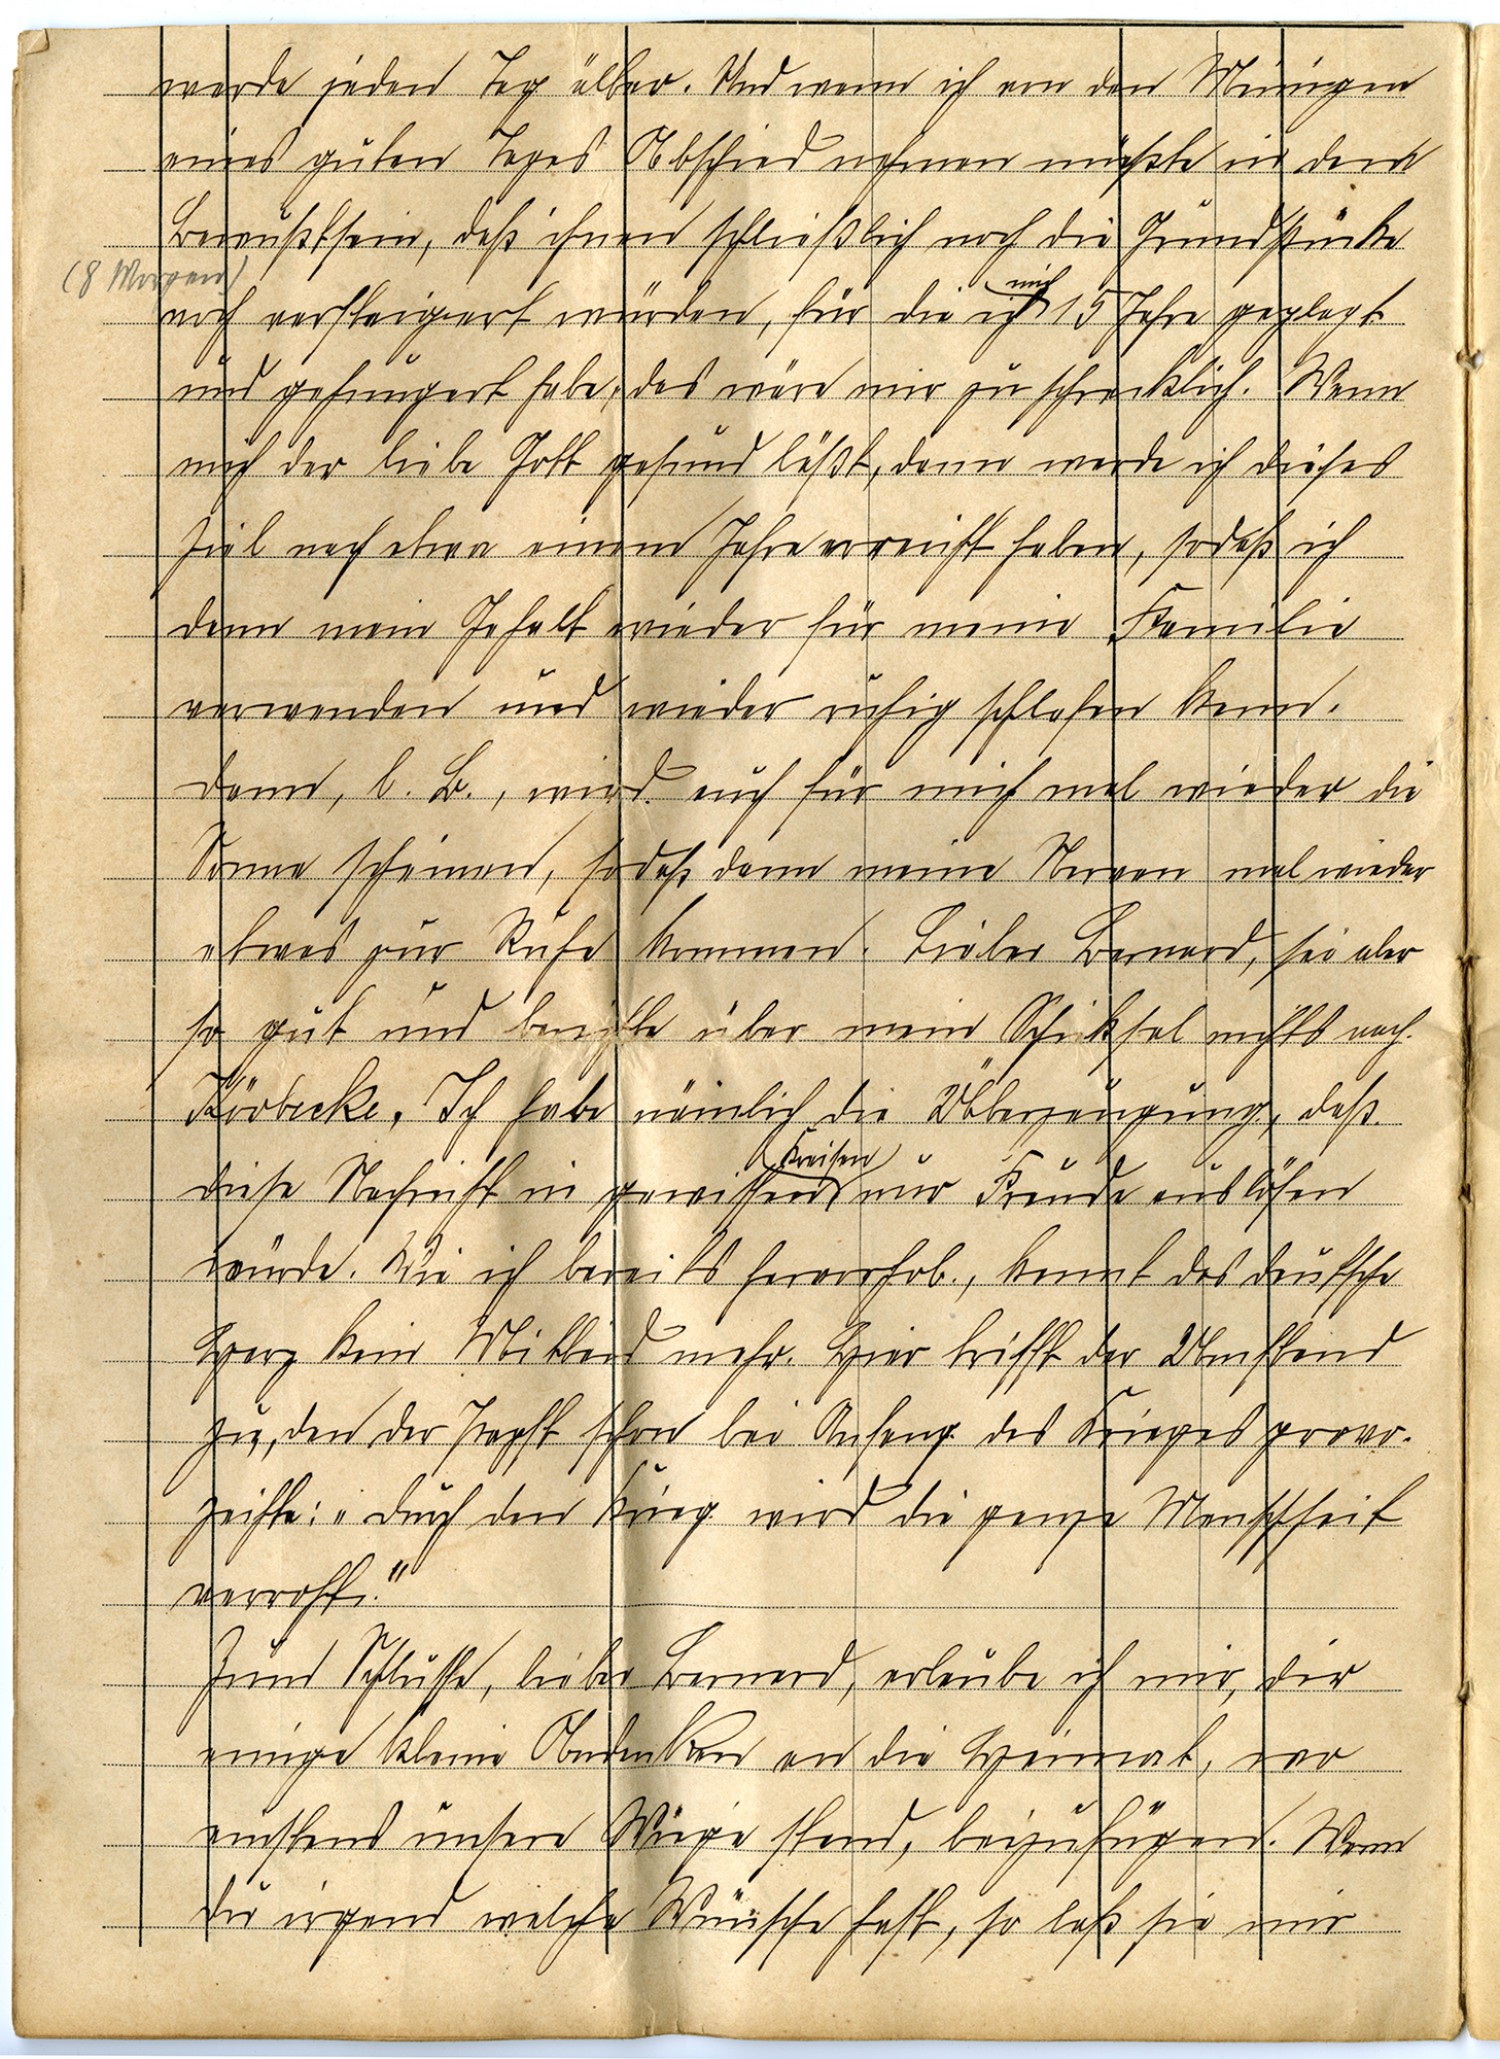 werde jeden Tag älter. Und wenn ich von den Meinigen
eines guten Tages Abschied nehmen müßte in dem
Bewußtsein, daß ihnen schließlich noch die Grundstücke
(8 Morgen)
noch versteigert würden, für die ich mich 15 Jahre geplagt
und gehungert habe, das wäre mir zu schrecklich. Wenn
mich der liebe Gott gesund läßt, dann werde ich dieses
Ziel nach etwa einem Jahre erreicht haben, sodaß ich
dann mein Gehalt wieder für meine Familie
verwenden und wieder ruhig schlafen kann.
Dann, l. B., wird auch für mich mal wieder die
Sonne scheinen, sodaß dann meine Nerven mal wieder
etwas zur Ruhe kommen. Lieber Bernard, sei aber
so gut und berichte über mein Schicksal nichts nach
Körbecke. Ich habe nämlich die Überzeugung, daß
diese Nachricht in gewissen Kreisen nur Freude auslösen
würde. Wie ich bereits hervorhob, kennt das deutsche
Herz kein Mitleid mehr. Hier trifft der Umstand
zu, den der Papst schon bei Anfang des Krieges provo-
zeihte: „Durch den Krieg wird die ganze Menschheit
verroht."
Zum Schlusse, lieber Bernard, erlaube ich mir, dir
einige kleine Andenken an die Heimat, wo
einstens unsere Wiege stand, beizufügen. Wenn
du irgend welche Wünsche hast, so laß sie mir